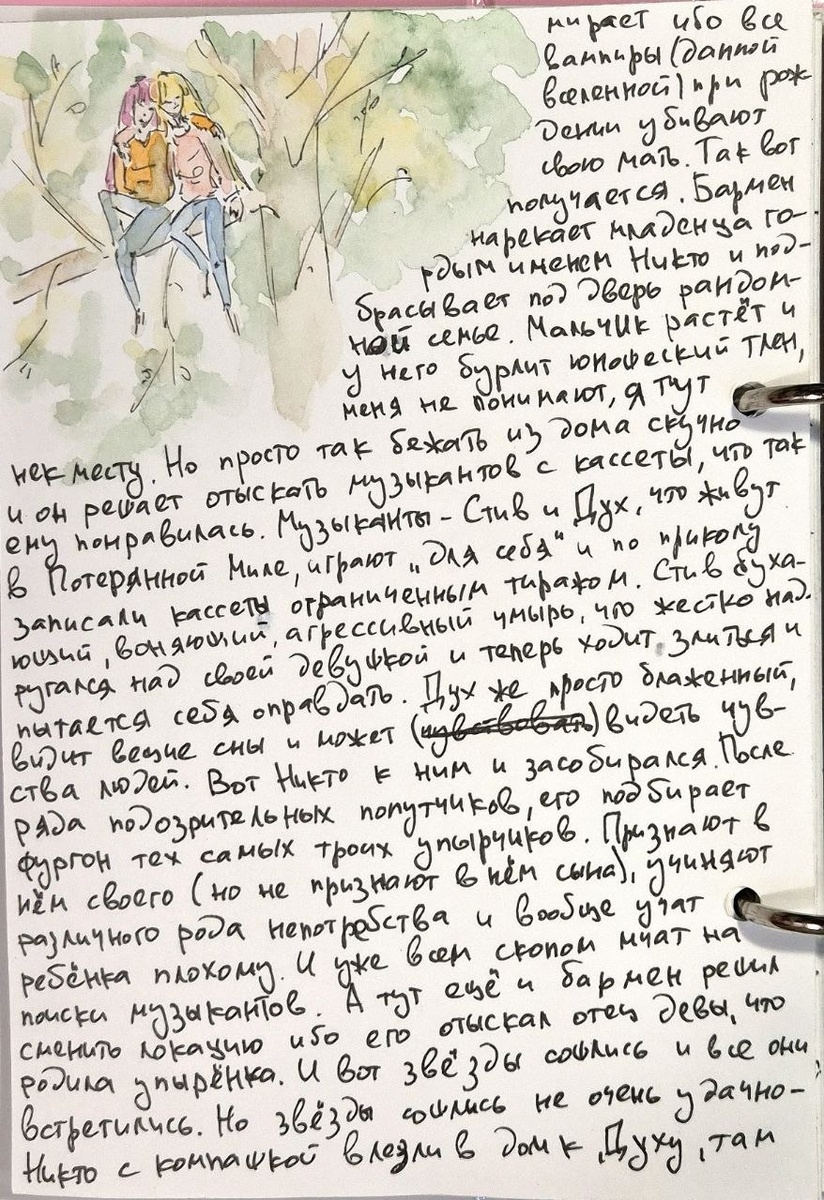 мирает ибо все
вампиры (данной
вселенной) при рож
дении убивают
свою мать. Так вот
получается. Бармен
нарекает младенца го-
рдым именем Никто и под-
брасывает под дверь рандом-
ной семье. Мальчик растёт и
у него бурлит юношеский тлен,
меня не понимают, я тут
не к месту. Но просто так бежать из дома скучно
и он решает отыскать музыкантов с кассеты, что так
ему понравилась. Музыканты - Стив и Дух, что живут
в Потерянной Миле, играют „для себя" и по приколу
записали кассеты ограниченным тиражом. Стив буха-
ющий, воняющий, агрессивный упырь, что жестко над-
ругался над своей девушкой и теперь ходит злиться и
пытается себя оправдать. Дух же просто блаженный,
видит вещие сны и может (чувствовать) видеть чув-
ства людей. Вот Никто к ним и засобирался. После
ряда подозрительных попутчиков, его подбирает
фургон тех самых троих упырчиков. Признают в
нём своего (но не признают в нём сына), учиняют
различного рода непотребства и вообще учат
ребёнка плохому. И уже всем скопом мчат на
поиски музыкантов. А тут ещё и бармен решил
сменить локацию ибо его отыскал отец девы, что
родила упырёнка. И вот звёзды сошлись и все они
встретились. Но звёзды сошлись не очень удачно-
Никто с компашкой влезли в дом к Духу, там